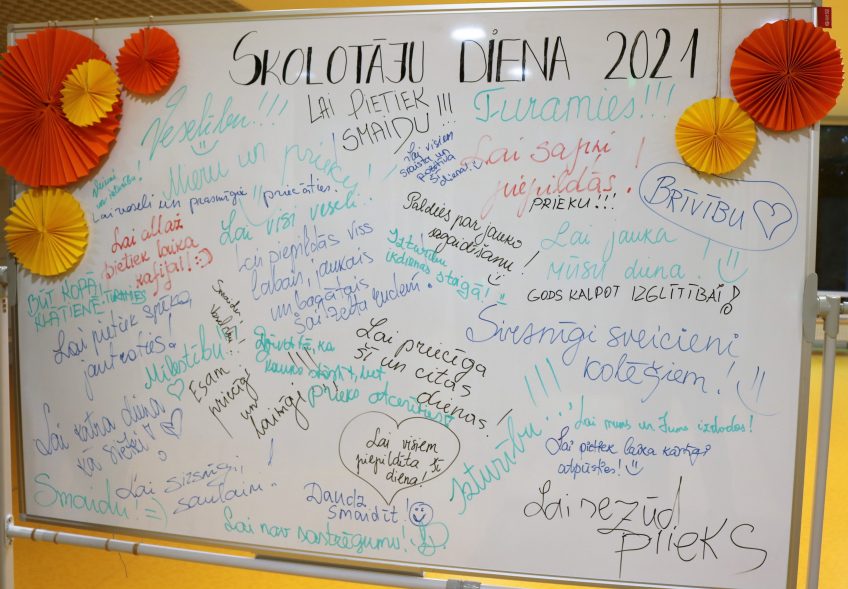 SKOLOTĀJU DIENA 2021
Veselību!!!
LAI PIETIEK
SMAIDU!!!
Turamies!!!
Mieru un prieku!
Lai visiem
un
dienai
Lai sapņi
piepildās!
PRIEKU!!!
BRĪVĪBU
Lai veseli un prasmīgi priecāties.
Lai visi veseli..
Paldies par jauko
sagaidīšanu!
Lai allaž
pietiek laika
kafijai! :)
Lai piepildās viss
labais, jaukais
un bagātais
šai zelta rudenī.
Izturību
ikdienas steigā!
Lai jauka
mūsu diena!
GODS KALPOT IZGLĪTĪBAI!
BŪT KOPĀ!
KLĀTIENĒ.
Lai pietiek spēka,
jautrāties!
Mīlestību!
Smaidu
Veselību
Esam
priecīgi
un
laimīgi!!!
bet
prieks atcerēties
Lai priecīga
šī un citas
dienas!
Sirsnīgi sveicieni
kolēģiem!
Lai katra diena
kā svētki!
Lai visiem
piepildīta šī
diena!
Izturību...!!!
Lai mums un Jums izdodas!
Lai pietiek laika kārtīgi
atpūsties!
Smaidu! =)
Lai sirsnīgi,
saulaini..
Daudz
smaidīt!
Lai nav sastrēgumu!
Lai nezūd
prieks